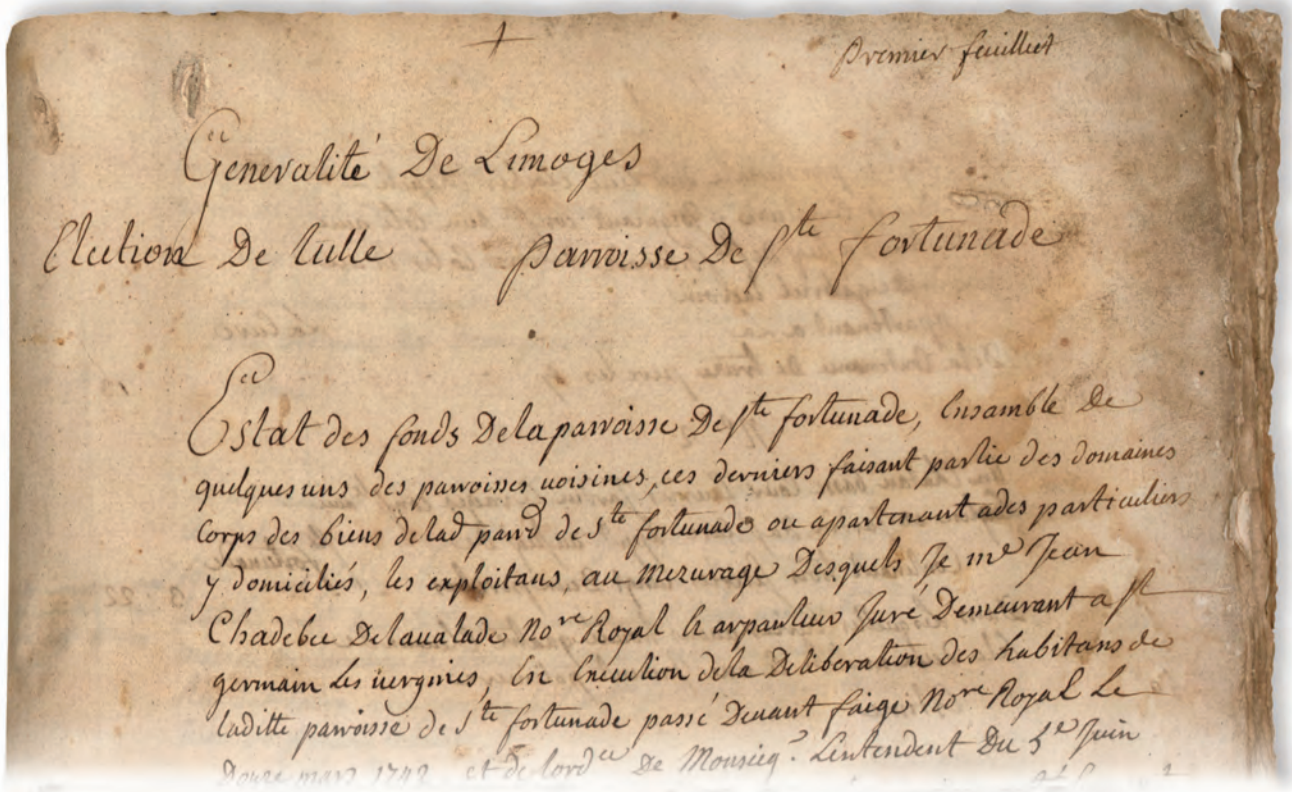 premier feuillet
Generalité De Limoges
Election De tulle parroisse De ste fortunade
Estat des fonds Dela parroisse De ste fortunade, Ensamble de
quelques uns des parroisses uoisines, ces derniers faisant partie des domaines
corps des biens de lad parr de ste fortunade ou apartenant a des particuliers
y domiciliés, les exploitans, au mezurage Desquels Je me Jean
Chadebec Delaualade Nore Royal & arpanteur Juré Demeurant a st
germain les uergnies, En Execution de la Deliberation des habitans de
laditte parroisse de ste fortunade passé Deuant faige Nore Royal Le
Douze mars 1743 et de lordce De Monseigr Lintendent Du 5e Juin